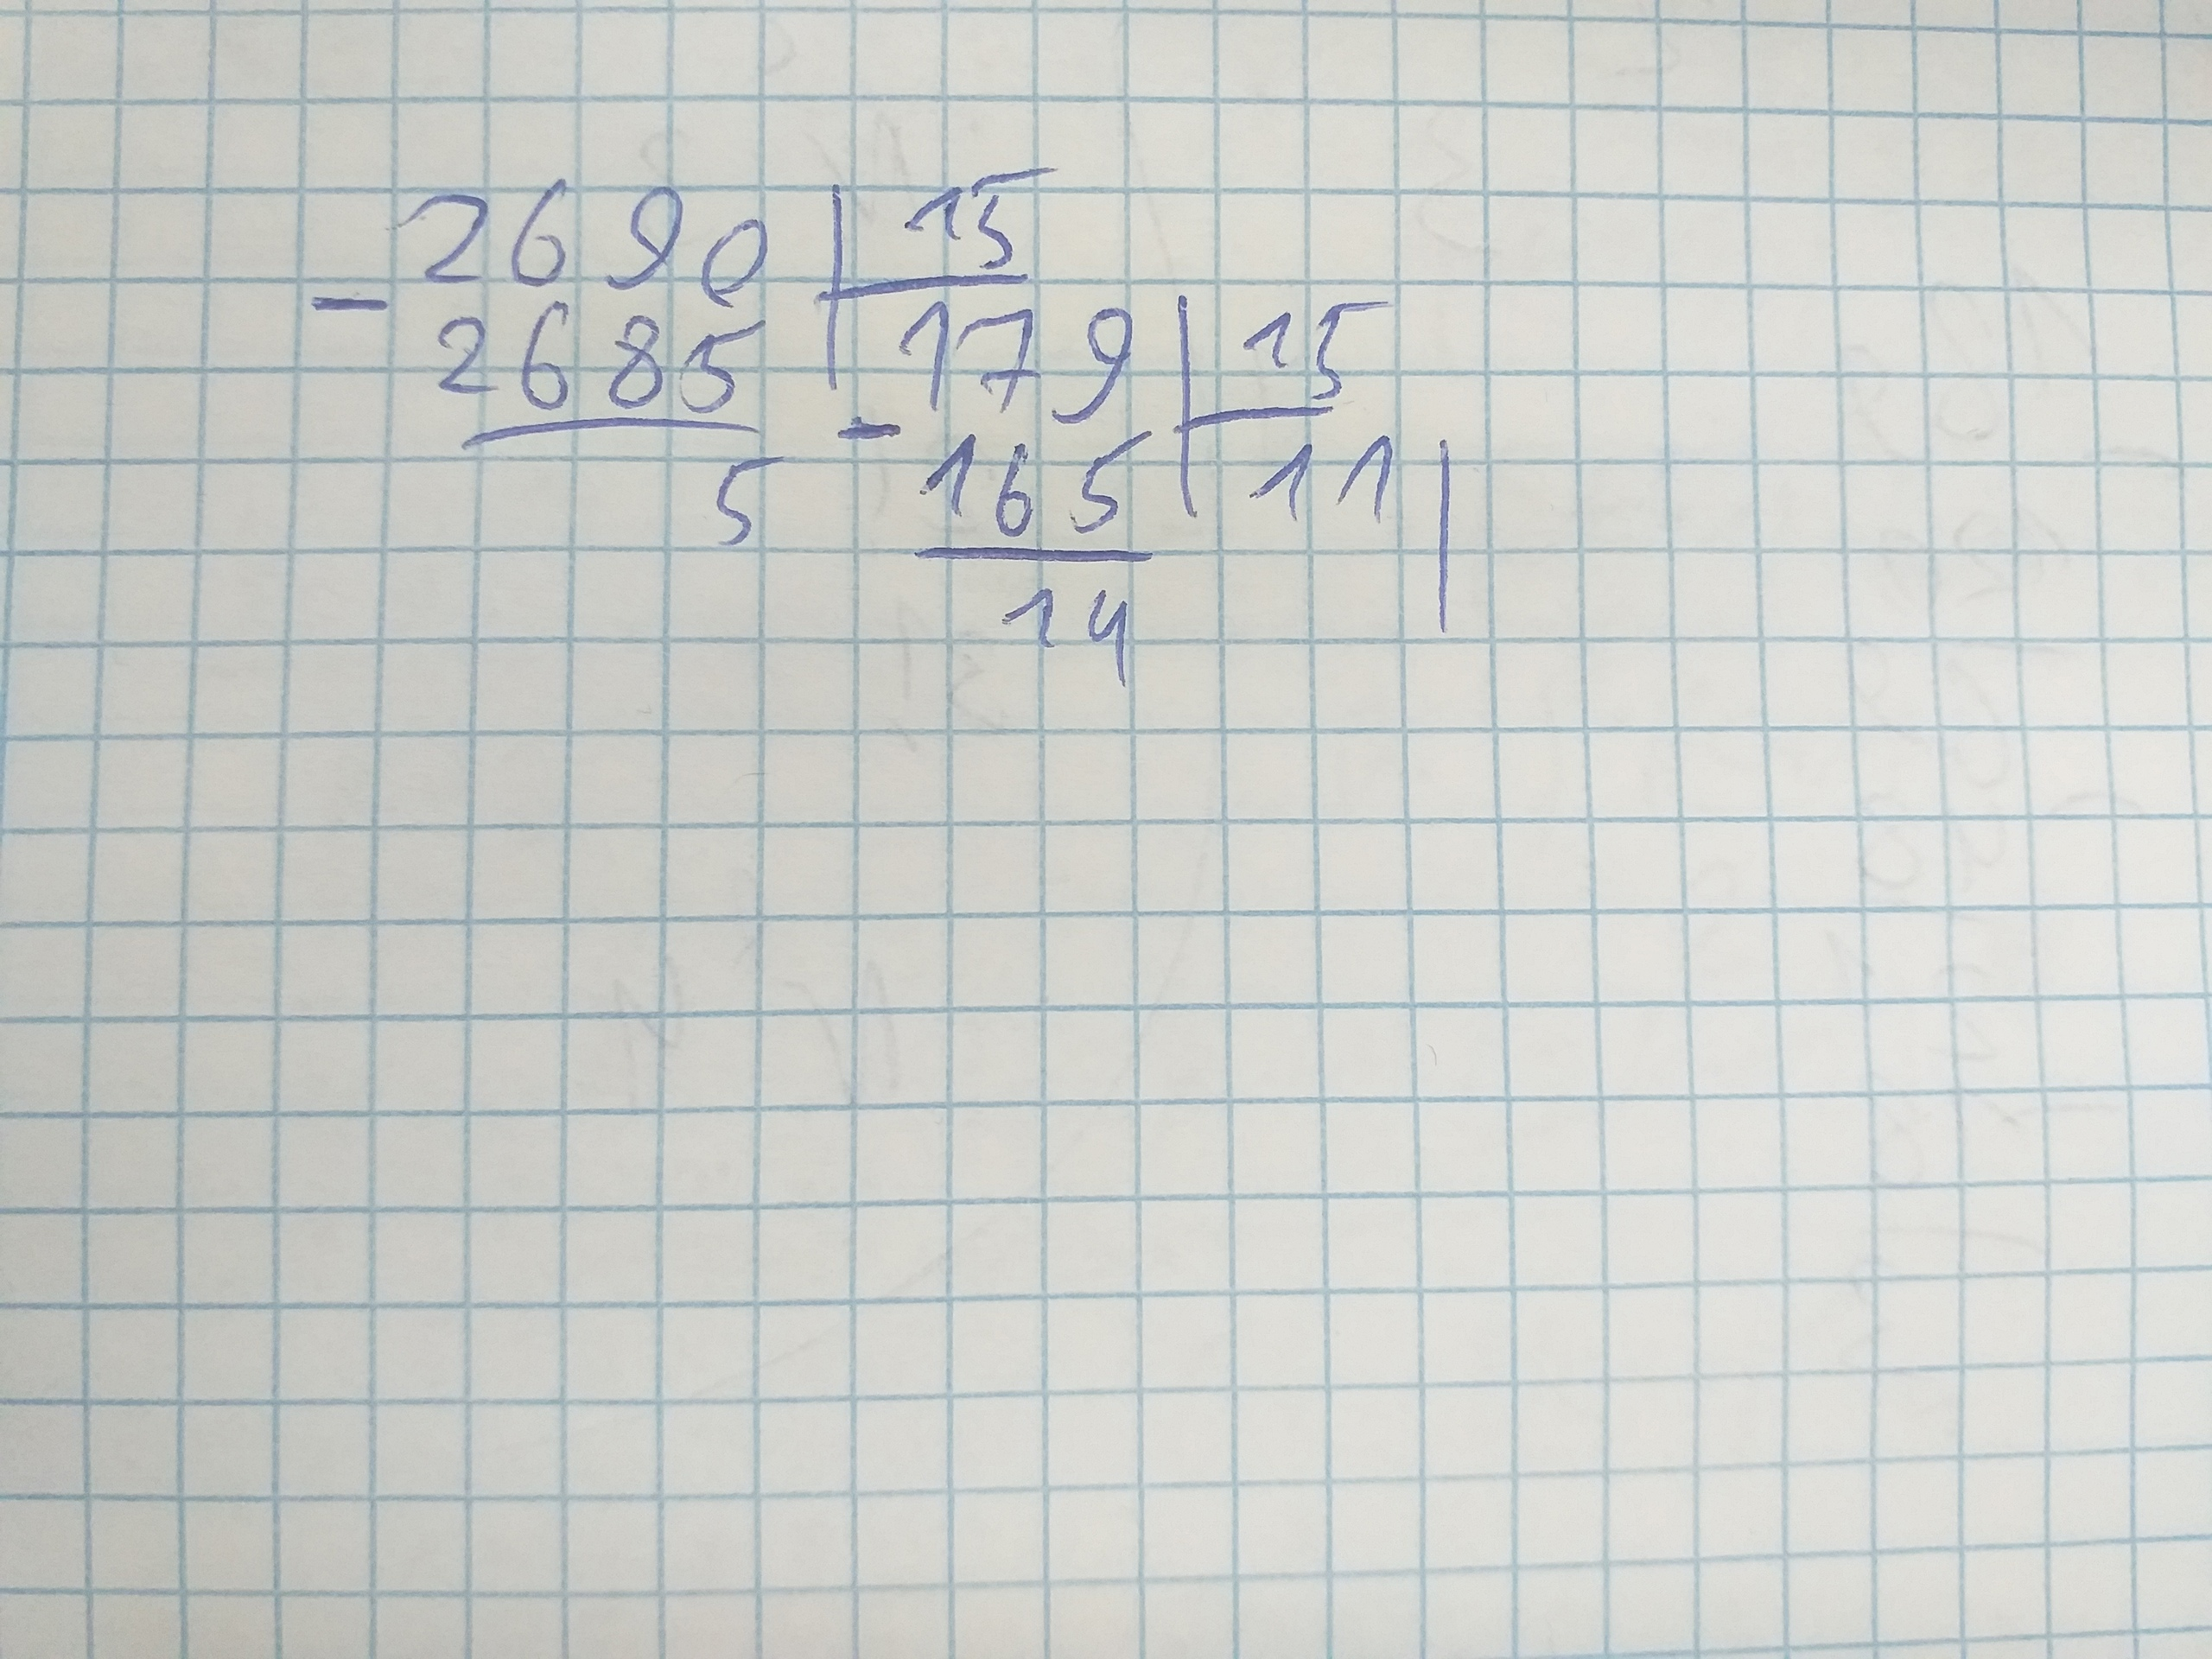 - 2690 | 15
2685 | 179 | 15
5 - 165 | 11 |
14